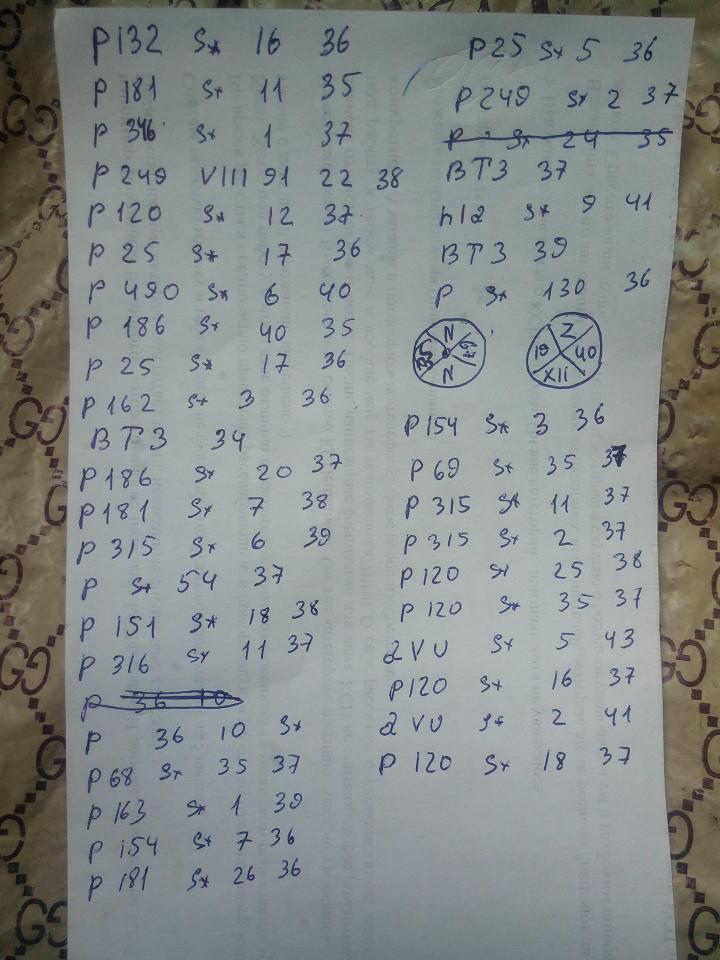 P 132 S* 16 36
P 181 S* 11 35
P 346 S* 1 37
P 249 VIII 91 22 38
P 120 S* 12 37
P 25 S* 17 36
P 490 S* 6 40
P 186 S* 40 35
P 25 S* 17 36
P 162 S* 3 36
ВТЗ 34
P 186 S* 20 37
P 181 S* 7 38
P 315 S* 6 39
P S* 54 37
P 151 S* 18 38
P 316 S* 11 37
P 36 10
P 36 10 S*
P 68 S* 35 37
P 163 S* 1 39
P 154 S* 7 36
P 181 S* 26 36
P 25 S* 5 36
P 249 S* 2 37
P S* 24 35
ВТЗ 37
n12 S* 9 41
ВТЗ 39
P S* 130 36
N
35 49
N
Z
19 40
XII
P 154 S* 3 36
P 69 S* 35 37
P 315 S* 11 37
P 315 S* 2 37
P 120 S* 25 38
P 120 S* 35 37
dVU S* 5 43
P 120 S* 16 37
dVU S* 2 41
P 120 S* 18 37